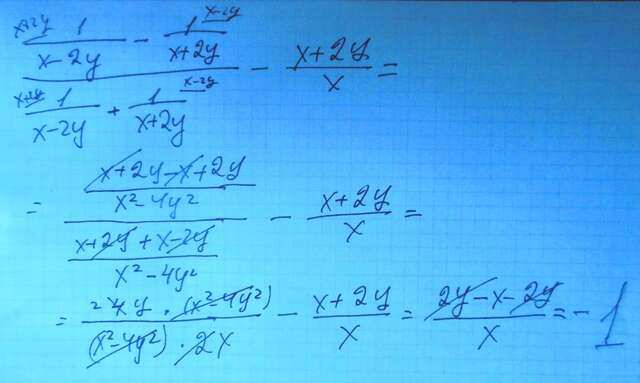 x+2y 1 / x-2y - 1 x-2y / x+2y
x+2y 1 / x-2y + 1 x-2y / x+2y
- x+2y / x =
= x+2y-x+2y / x²-4y²
x+2y+x-2y / x²-4y²
- x+2y / x =
= 2 4y · (x²-4y²) / (x²-4y²) · 2x - x+2y / x = 2y-x-2y / x = -1